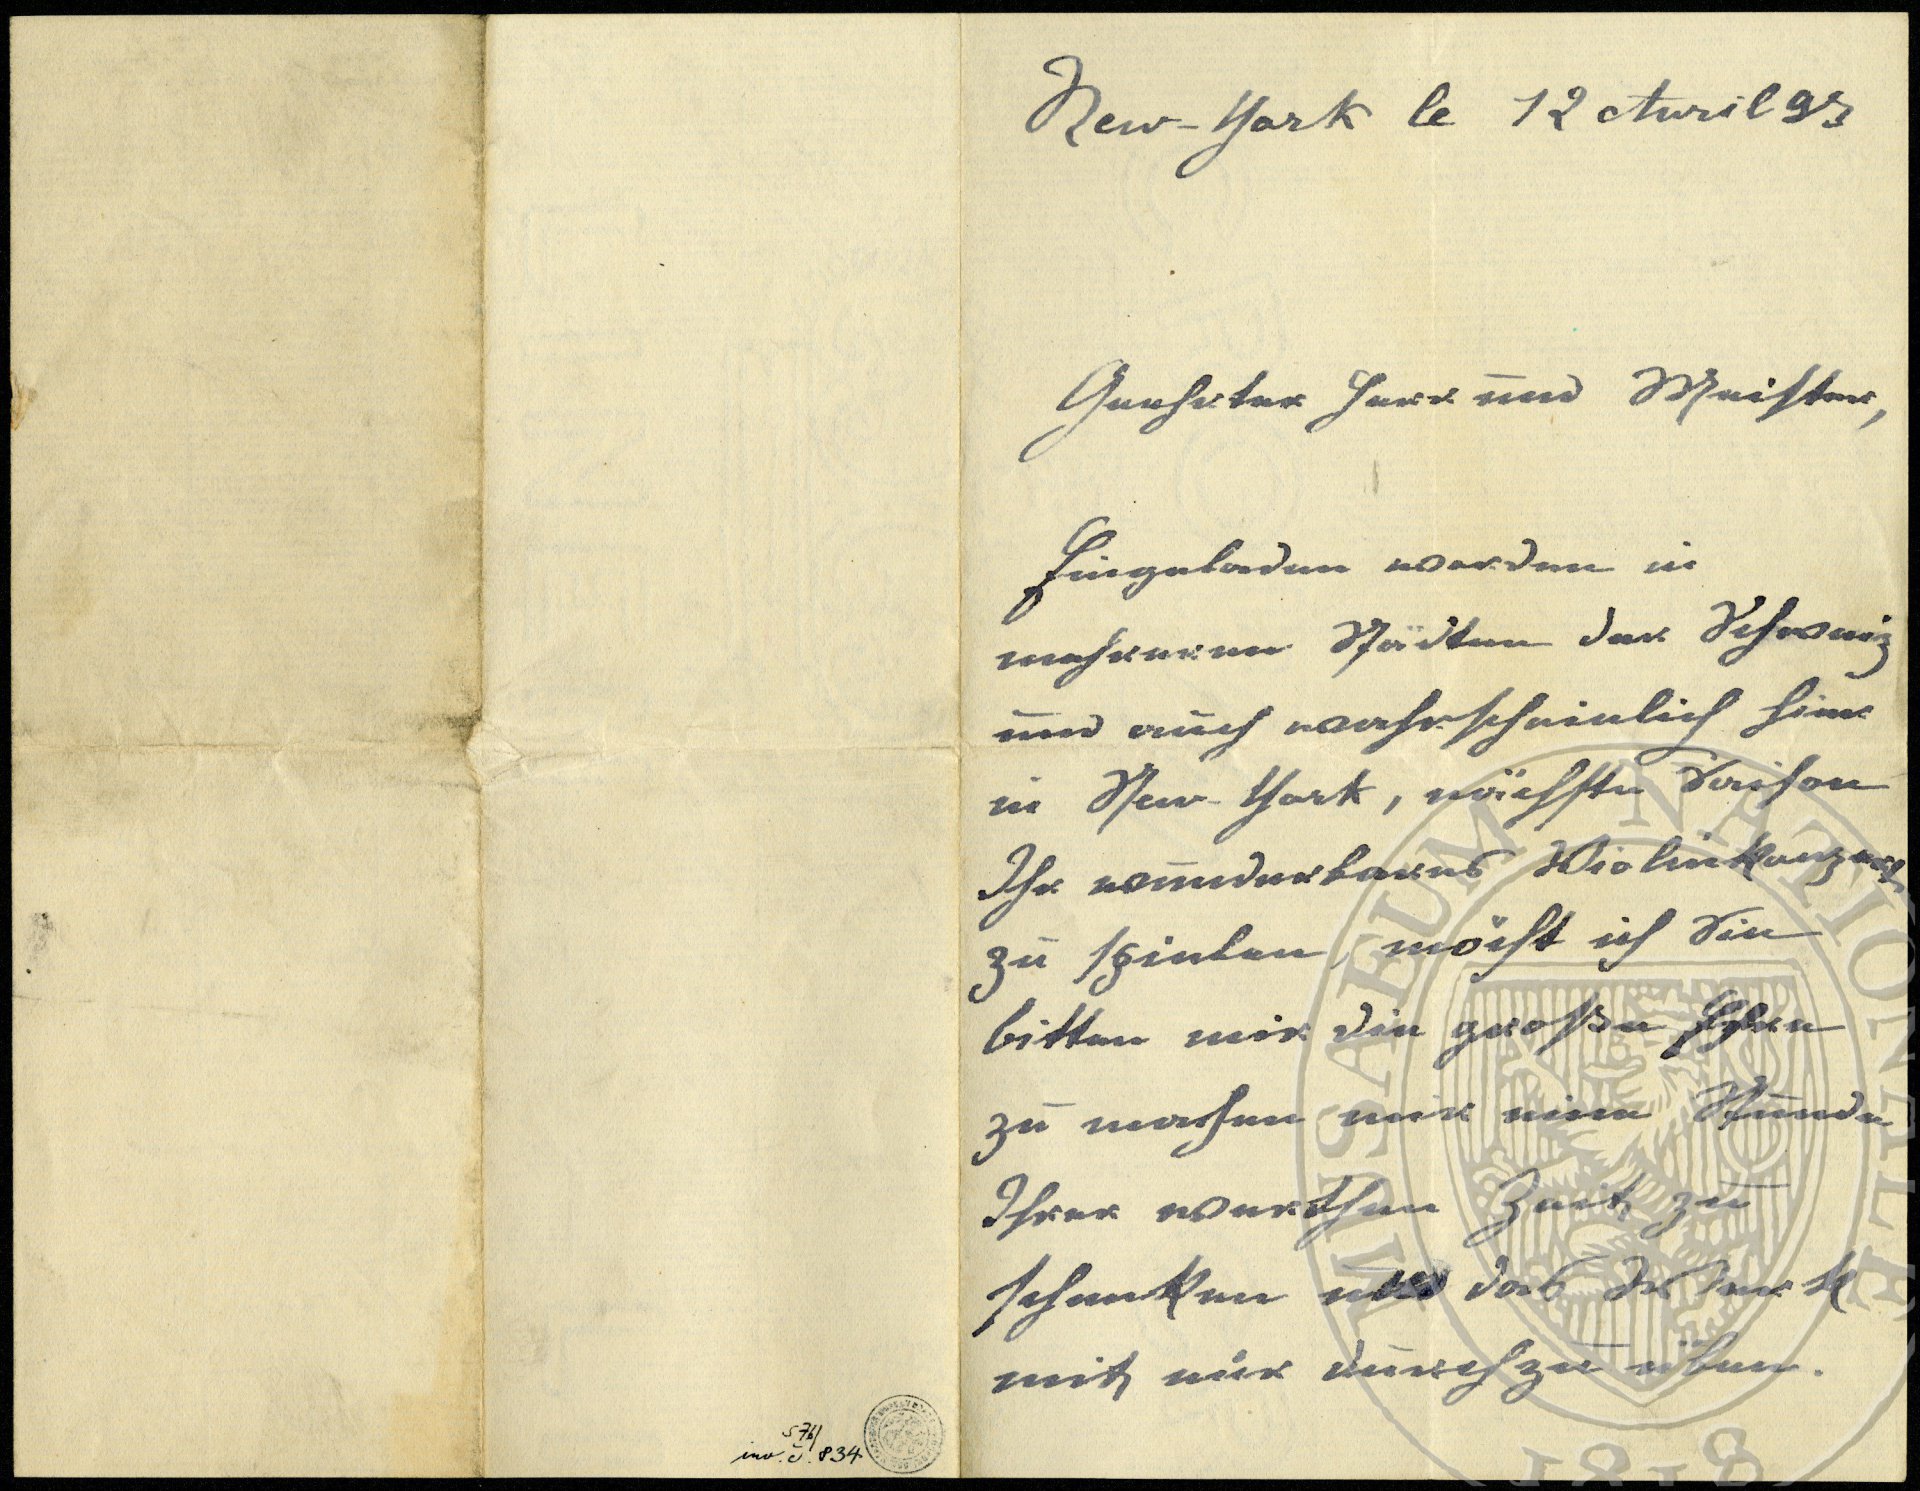 New-York le 12 Avril 93
Geehrter Herr und Meister,
Eingeladen worden in
mehreren Städten der Schweiz
und auch wahrscheinlich hier
in New-York, nächste Saison
Ihr wunderbares Violinkonzert
zu spielen, möcht ich Sie
bitten mir die große Ehre
zu machen mir eine Stunde
Ihrer werthen Zeit zu
schenken und das Werk
mit mir durchzu üben.
S 76/
inv. č. 834
MUSAEUM NATIONALE
1818